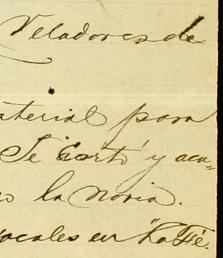 Veladores de
material para
Se cortó y aca-
la noria.
locales en "La Fé.